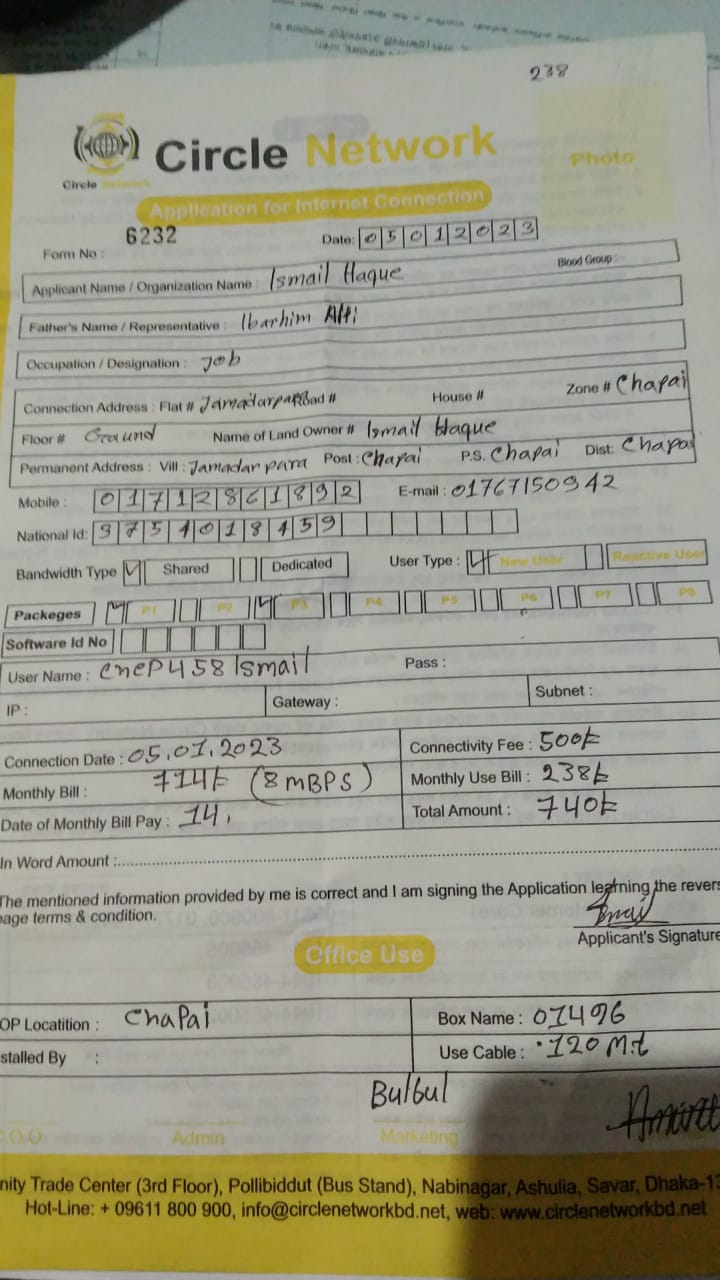 238
Circle Network
Circle Network
Photo
Application for Internet Connection
Form No : 6232
Date: 05012023
Blood Group :
Applicant Name / Organization Name : Ismail Haque
Father's Name / Representative : Ibarhim Alti
Occupation / Designation : Job
Connection Address : Flat # Jamadarpara Road # House # Zone # Chapai
Floor # Ground Name of Land Owner # Ismail Haque
Permanent Address : Vill : Jamadar para Post : Chapai P.S. Chapai Dist: Chapai
Mobile : 01712861892 E-mail : 01767150942
National Id: 3754018459
Bandwidth Type Shared Dedicated User Type : New User Reactive User
Packeges P1 P2 P3 P4 P5 P6 P7 P8
Software Id No
User Name : cnep458Ismail Pass :
IP : Gateway : Subnet :
Connection Date : 05.01.2023 Connectivity Fee : 500/=
Monthly Bill : 714/= (8 MBPS) Monthly Use Bill : 238/=
Date of Monthly Bill Pay : 14. Total Amount : 740/=
In Word Amount :
The mentioned information provided by me is correct and I am signing the Application learning the revers
page terms & condition.
Ismail
Applicant's Signature
Office Use
OP Locatition : Chapai Box Name : 01496
stalled By : Use Cable : 120 M.t
Bulbul
C.O.O Admin Marketing
nity Trade Center (3rd Floor), Pollibiddut (Bus Stand), Nabinagar, Ashulia, Savar, Dhaka-13
Hot-Line: + 09611 800 900, info@circlenetworkbd.net, web: www.circlenetworkbd.net